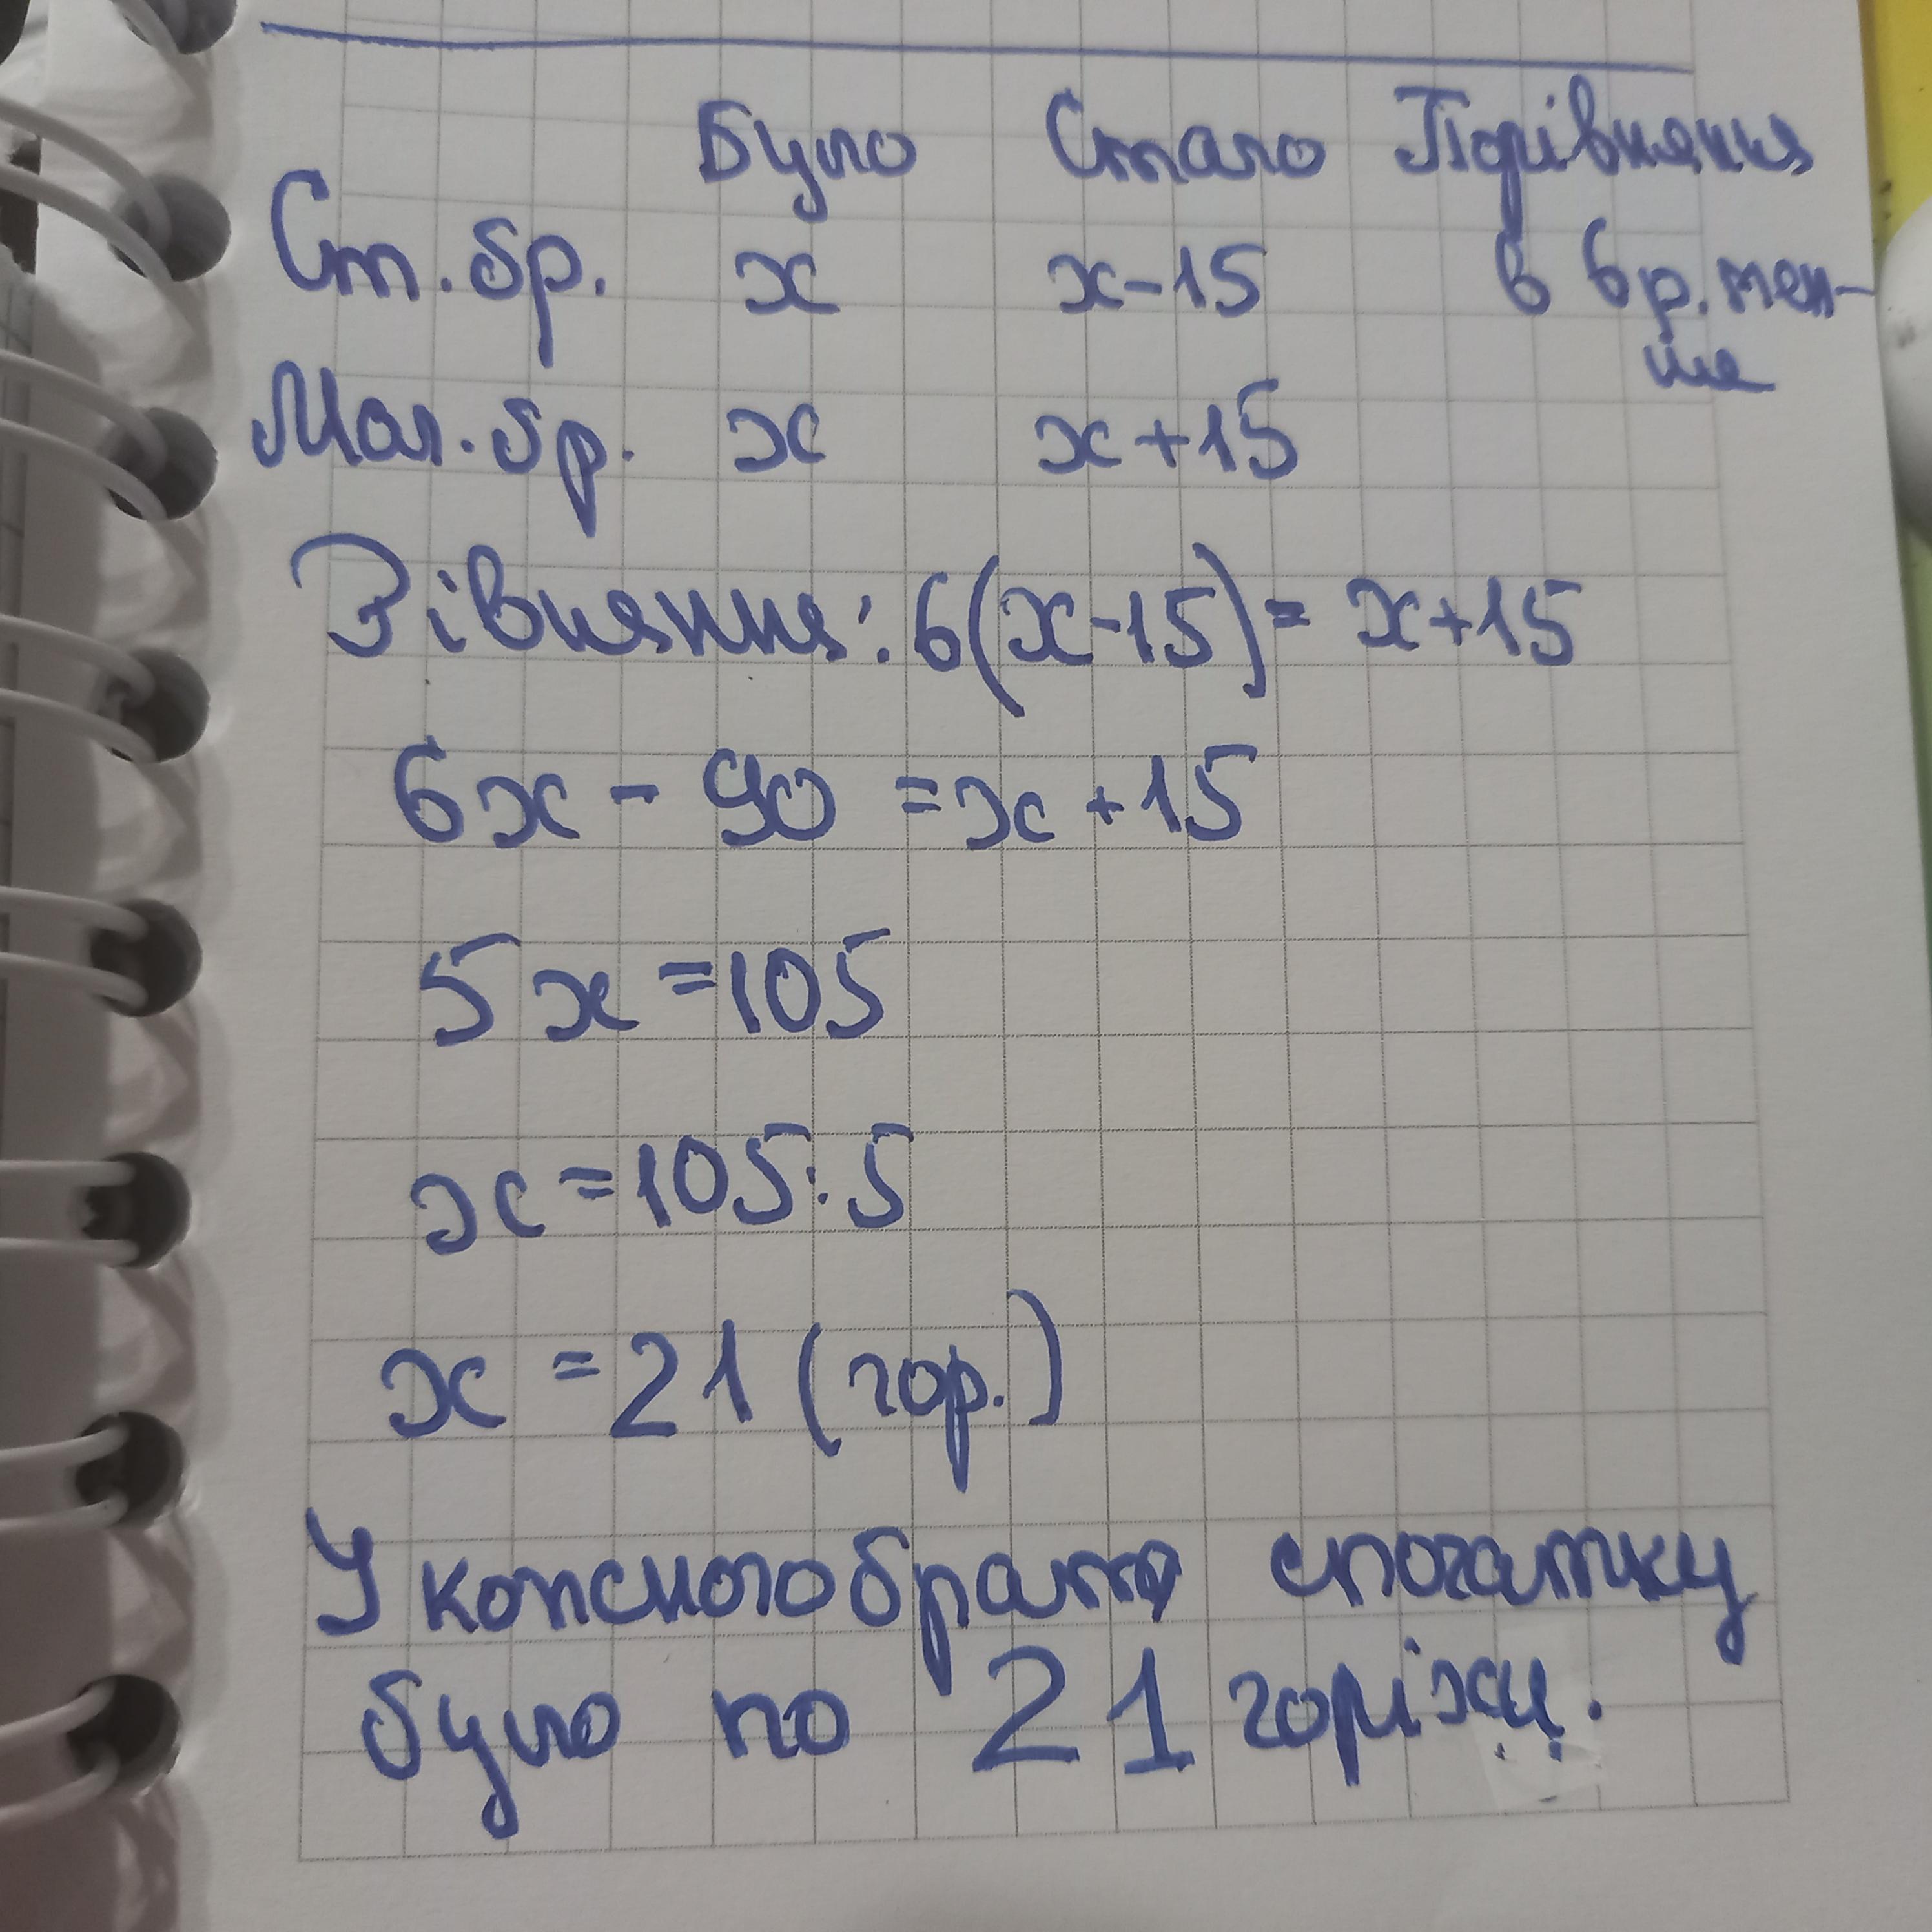 Було Стало Порівняння
Ст. бр. x x-15 в 6 р. мен-
ше
Мол. бр. x x+15
Рівняння: 6(x-15) = x+15
6x - 90 = x + 15
5x = 105
x = 105:5
x = 21 (гор.)
У кожного брата спочатку
було по 21 горіху.